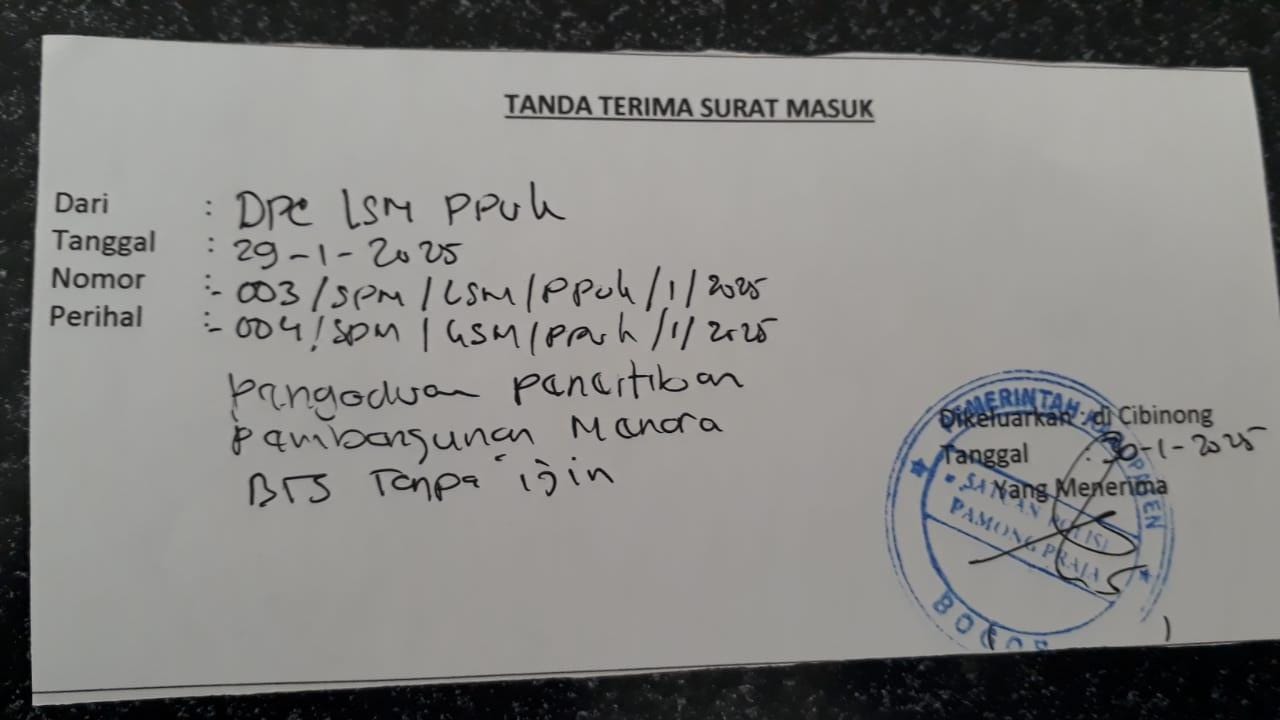 TANDA TERIMA SURAT MASUK
Dari : DPC LSM PPUK
Tanggal : 29-1-2025
Nomor :- 003/SPM/LSM/PPUK/1/2025
Perihal :- 004/SPM/LSM/PPUK/1/2025
Pangaduan panartiban
pambangunan Manara
BTS Tanpa ijin
Dikeluarkan : di Cibinong
Tanggal : 30-1-2025
Yang Menerima
PEMERINTAH KABUPATEN
SATUAN POLISI
PAMONG PRAJA
BOGOR
( )